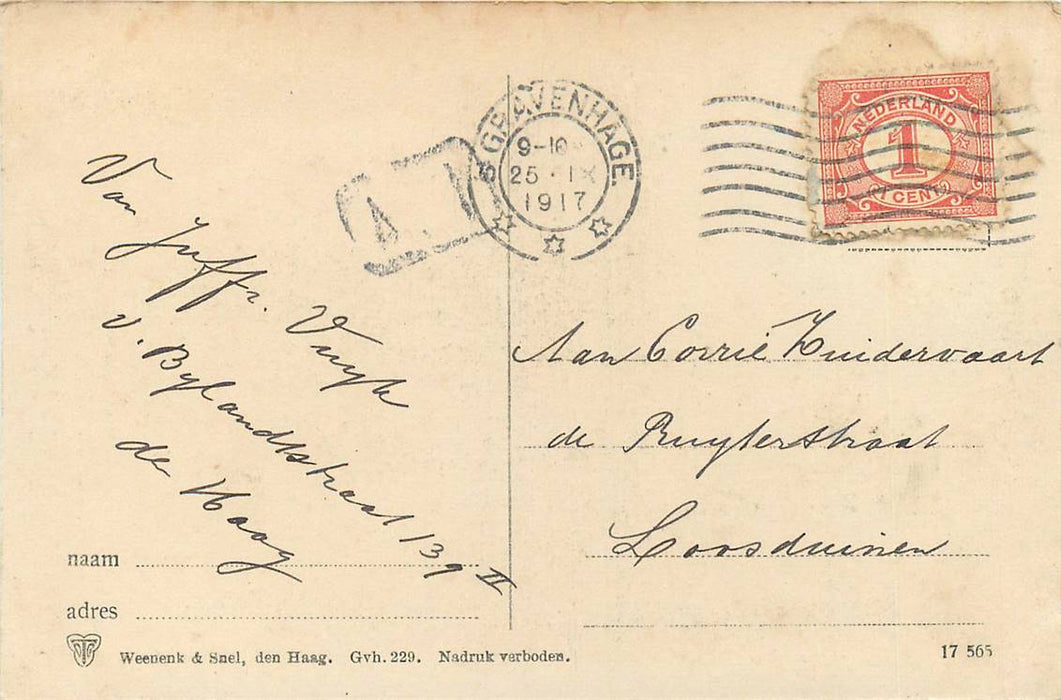 'S GRAVENHAGE.
9-10
25 . IX
1917
NEDERLAND
1
1 CENT
A.
Van
Juffr. Vuyk
v. Bylandtstraat 139 II
de Haag
Aan Corrie Zuidervaart
de Ruyterstraat
Loosduinen
naam
adres
Weenenk & Snel, den Haag. Gvh. 229. Nadruk verboden.
17 565